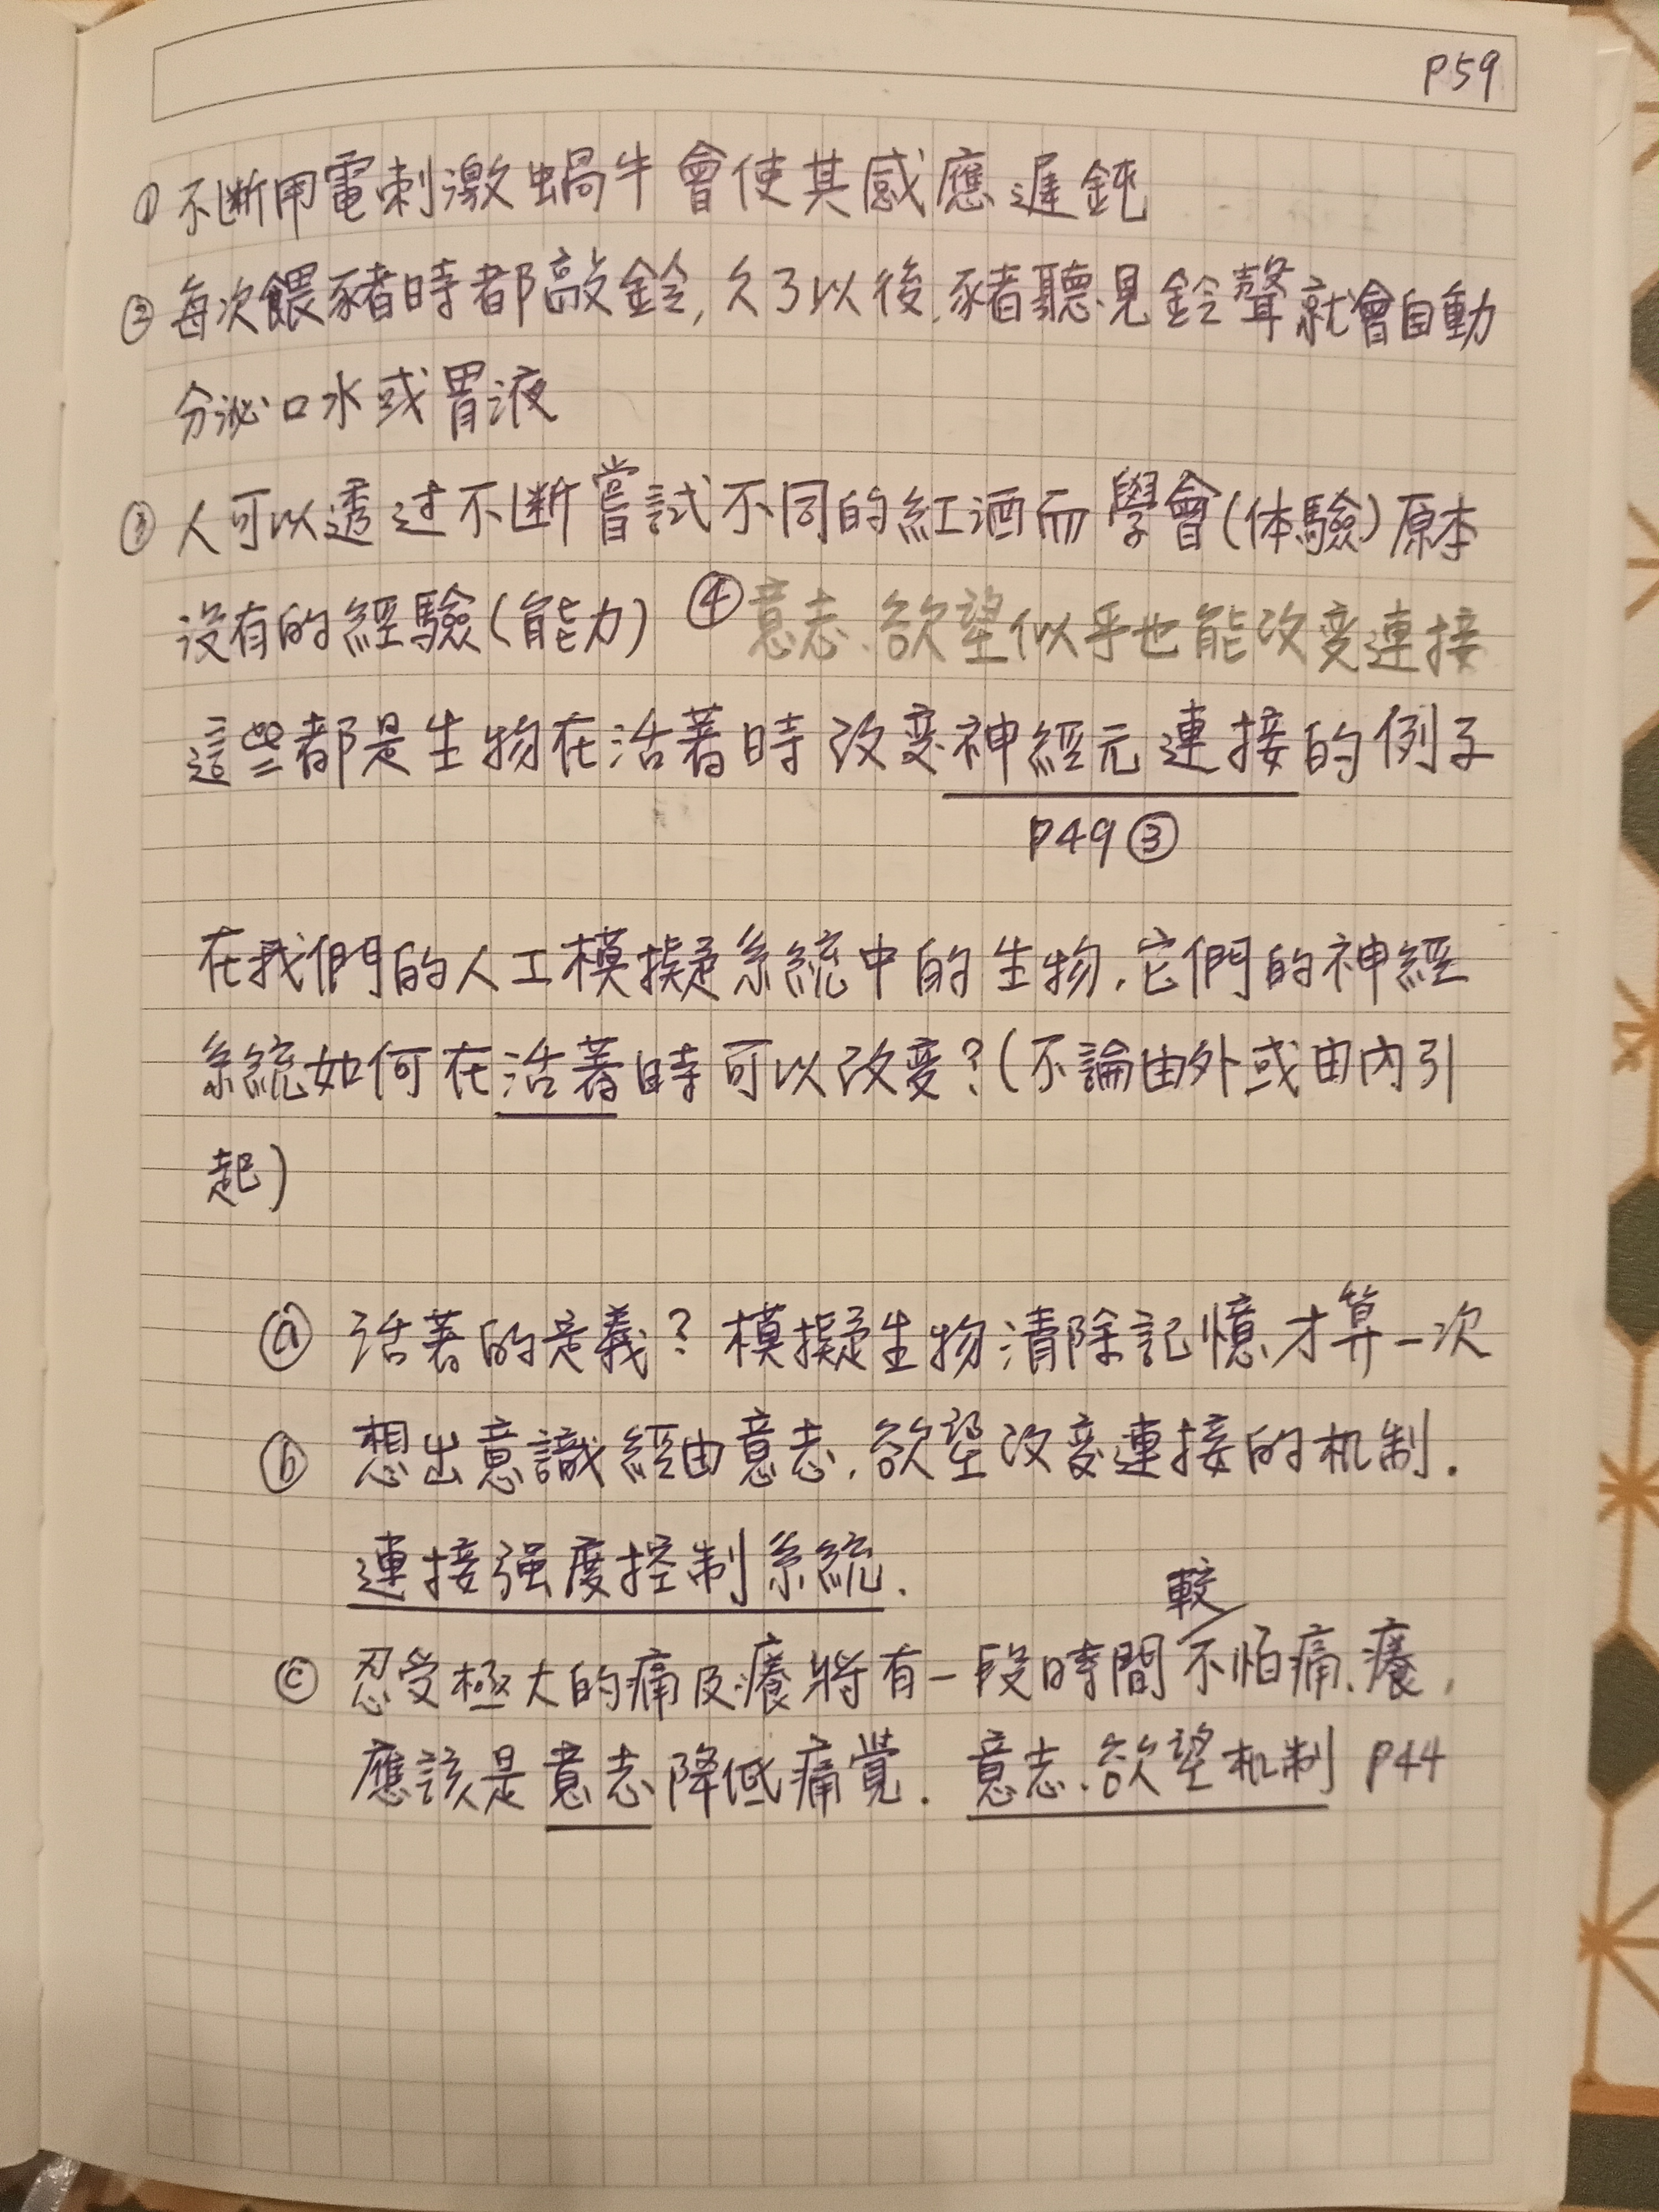 P59
① 不斷用電刺激蝸牛會使其感應遲鈍
② 每次餵豬時都敲鈴, 久了以後, 豬聽見鈴聲就會自動
分泌口水或胃液
③ 人可以透过不斷嘗試不同的紅酒而學會(体驗)原本
沒有的經驗(能力) ④意志、欲望似乎也能改变連接
這些都是生物在活著時改变神經元連接的例子
P49③
在我們的人工模擬系統中的生物, 它們的神經
系統如何在活著時可以改变?(不論由外或由內引
起)
ⓐ 活著的定義? 模擬生物清除記憶才算一次
ⓑ 想出意識經由意志、欲望改变連接的机制.
連接强度控制系統.
較
ⓒ 忍受極大的痛及癢將有一段時間不怕痛、癢,
應該是意志降低痛覺. 意志、欲望机制 P44